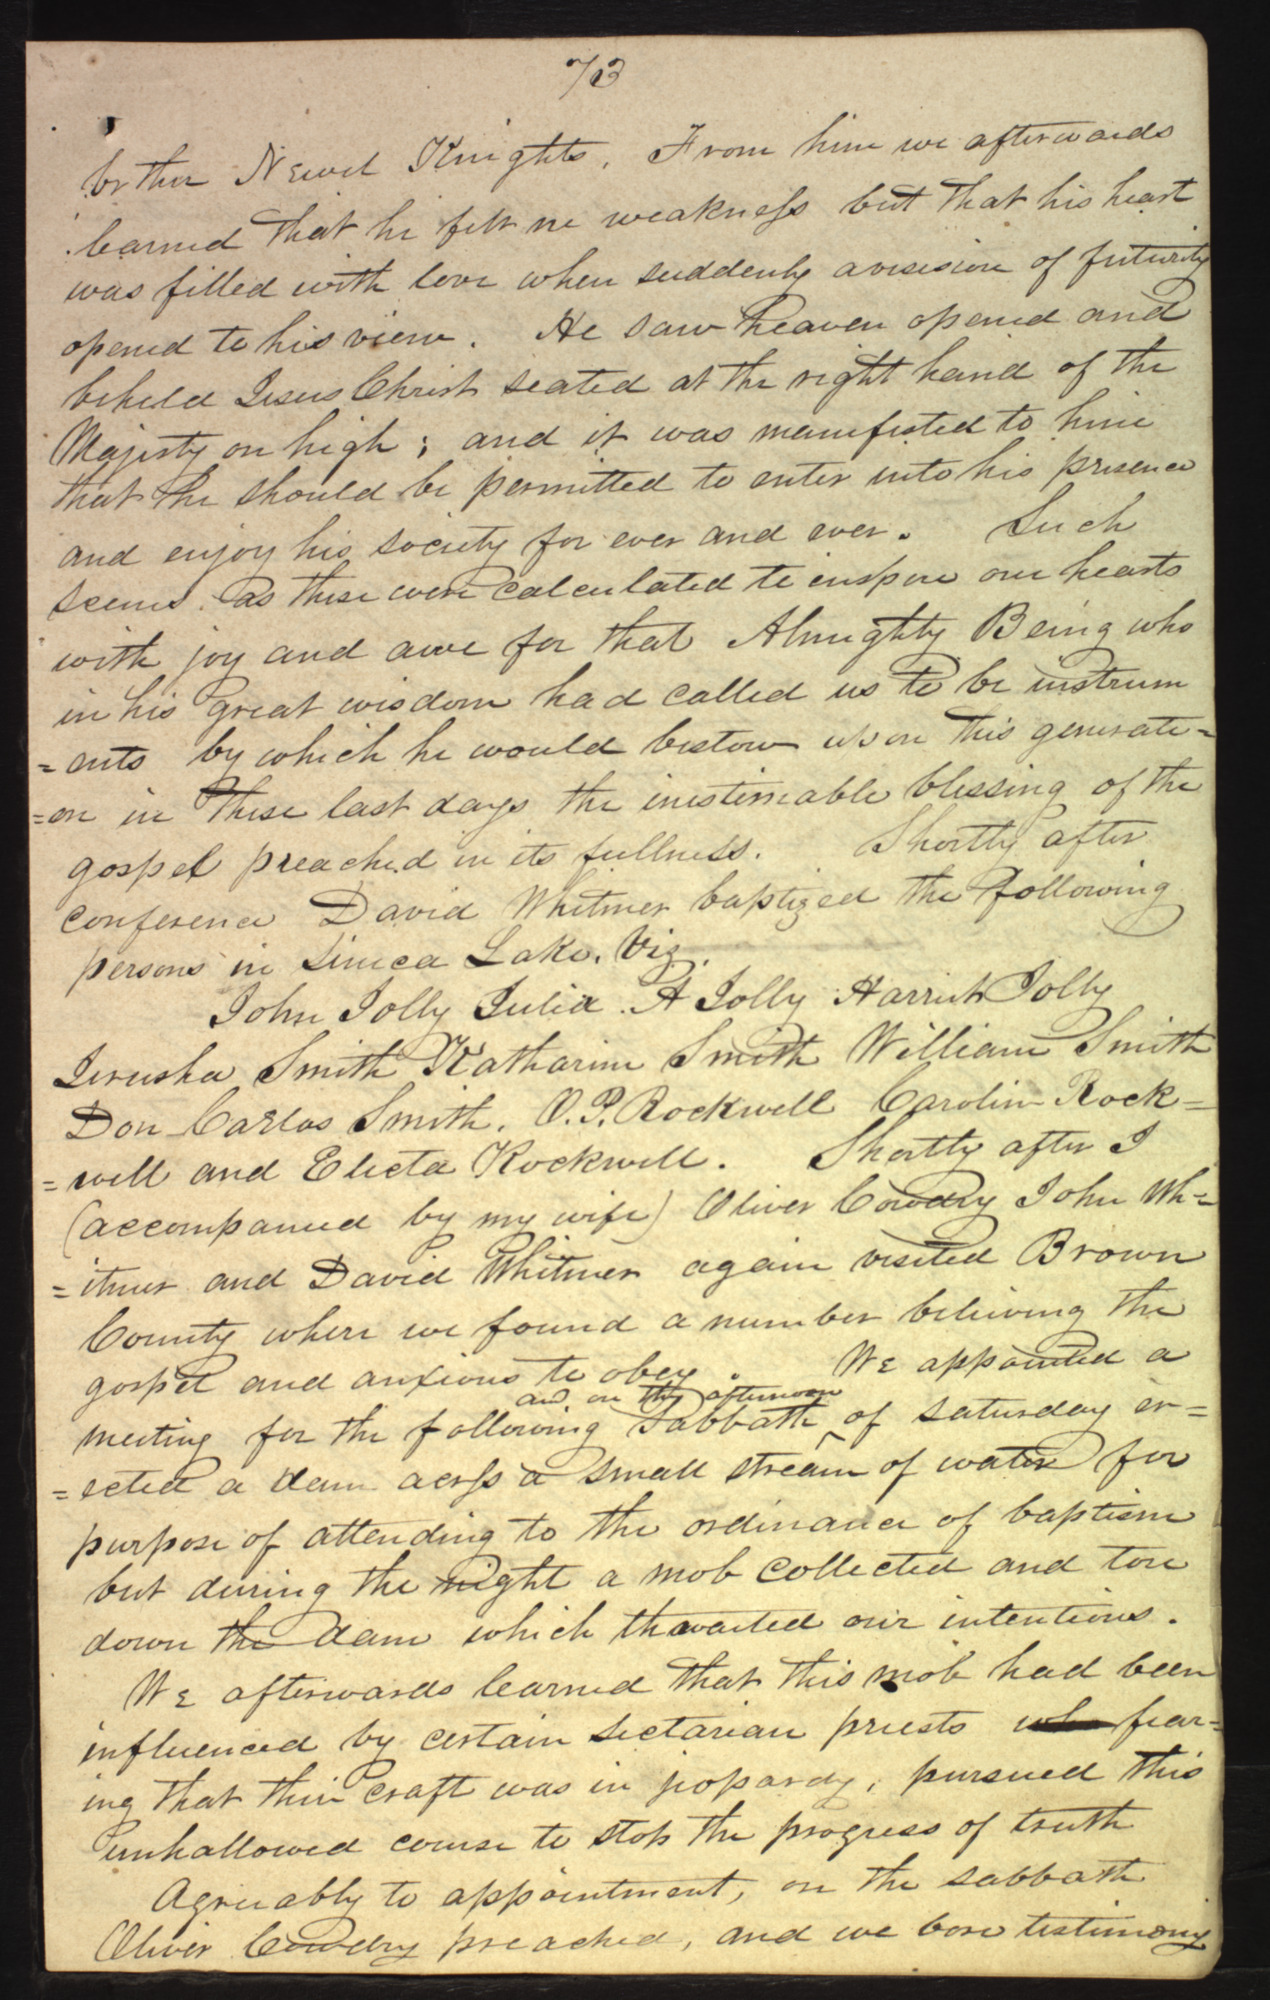 73
brther Newel Knights. From him we afterwards
learned that he felt no weakness but that his heart
was filled with love when suddenly a visision of futurity
opened to his view. He saw heaven opened and
beheld Jesus Christ seated at the right hand of the
Majesty on high; and it was manifested to him
that he should be permitted to enter into his presence
and enjoy his society for ever and ever. Such
scenes as these were calculated to inspire our hearts
with joy and awe for that Almighty Being who
in his great wisdom had called us to be instrum
=ents by which he would bestow upon this generati=
=on in these last days the inestimable blessing of the
gospel preached in its fullness. Shortly after
conference David Whitmer baptized the following
persons in Seneca Lake. Viz.
John Jolly Julia A Jolly Harriet Jolly
Jerusha Smith Katharine Smith William Smith
Don Carlos Smith. O. P. Rockwell Carolin Rock=
=well and Electa Rockwell. Shortly after I
(accompanied by my wife) Oliver Cowdry John Wh=
=itmer and David Whitmer again visited Brown
County where we found a number believing the
gospel and anxious to obey. We appointed a
and on the afternoon
meeting for the following Sabbath ^ of saturday er=
=ected a dam acrss a small stream of water for
purpose of attending to the ordinance of baptism
but during the night a mob collected and tore
down the dam which thwarted our intentions.
We afterwards learned that this mob had been
influenced by certain sectarian priests who fear=
ing that their craft was in jopardy, pursued this
unhallowed course to stop the progress of truth
Agreeably to appointment, on the sabbath
Oliver Cowdry preached, and we bore testimony